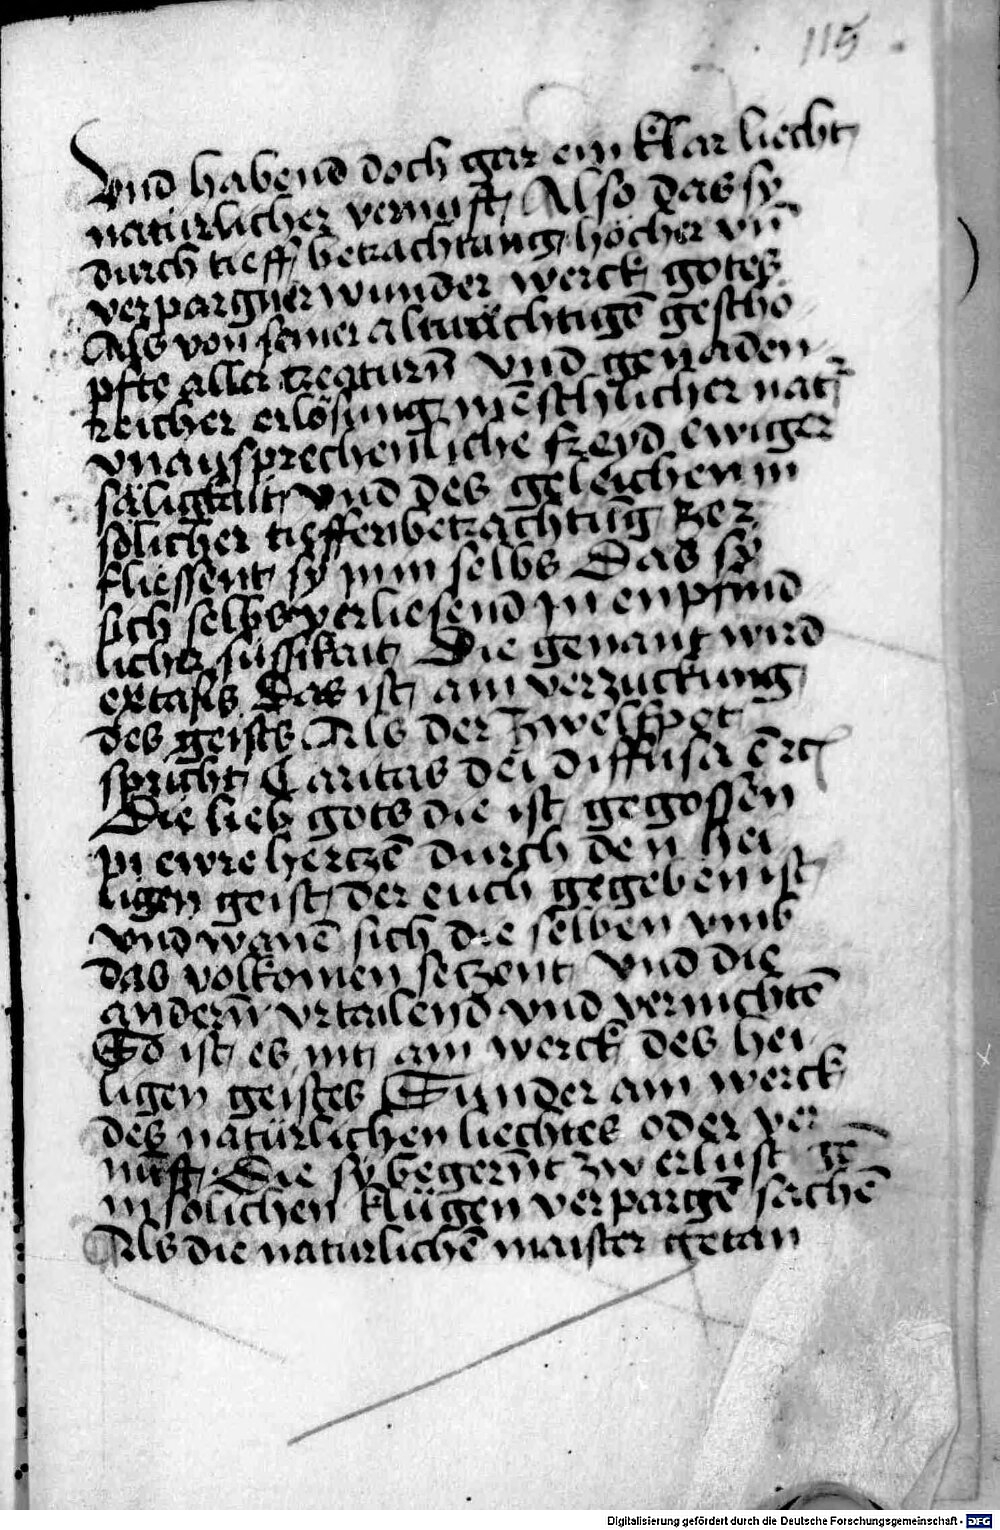 115
Vnd habend doch gar ein klar liecht
naturlicher vernuft Also das sy
durch tieff betrachtung höcher vn̄
verpargner wunder werck gotes
Als von seiner almächtigē geschö
pfte aller creaturn̄ vnd genaden
reicher erlösung mēschlicher nat
vnaussprechenliche freyd ewiger
säligkait vnd des geleichen in
sölicher tieffen betrachtung zer
fliessent sy in in selbs Das sy
sich selbs verliesend in enpfind
licher süssikait Die genant wird
extasis Das ist ain verzuckung
des geists Als der zwelfpot
spricht Caritas dei diffusa ē rc̄
Die lieb gots die ist gegossen
in ewre hertzē durch den hei
ligen geist der euch gegeben ist
vnd wänē sich die selben vmb
das volkomen setzent vnd die
andern̄ vrtailend vnd vernichtē
So ist es nit ain werck des hei
ligen geistes Sunder ain werck
des natürlichen liechtes oder ver
nuft Die sy begern̄t zw erlustgē
in solichen klügen verpargē sachē
Als die naturlichē maister getan
Digitalisierung gefördert durch die Deutsche Forschungsgemeinschaft - DFG